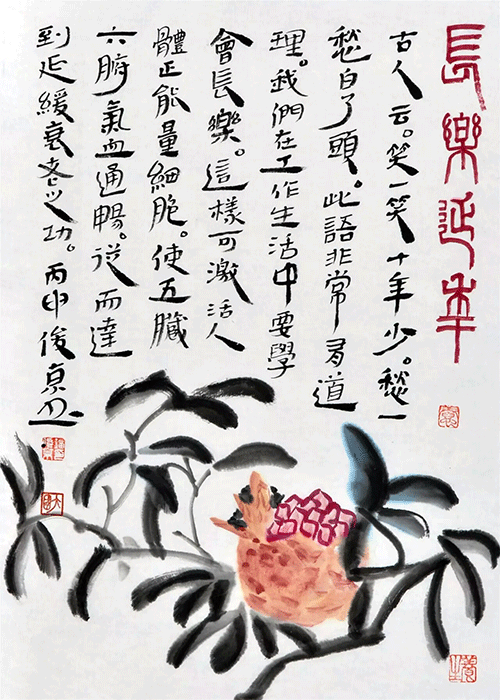 長樂延年
古人云。笑一笑十年少。愁一
愁白了頭。此語非常有道
理。我們在工作生活中要學
會長樂。這樣可激活人
體正能量細胞。使五臟
六腑氣血通暢。從而達
到延緩衰老之功。丙申俊京